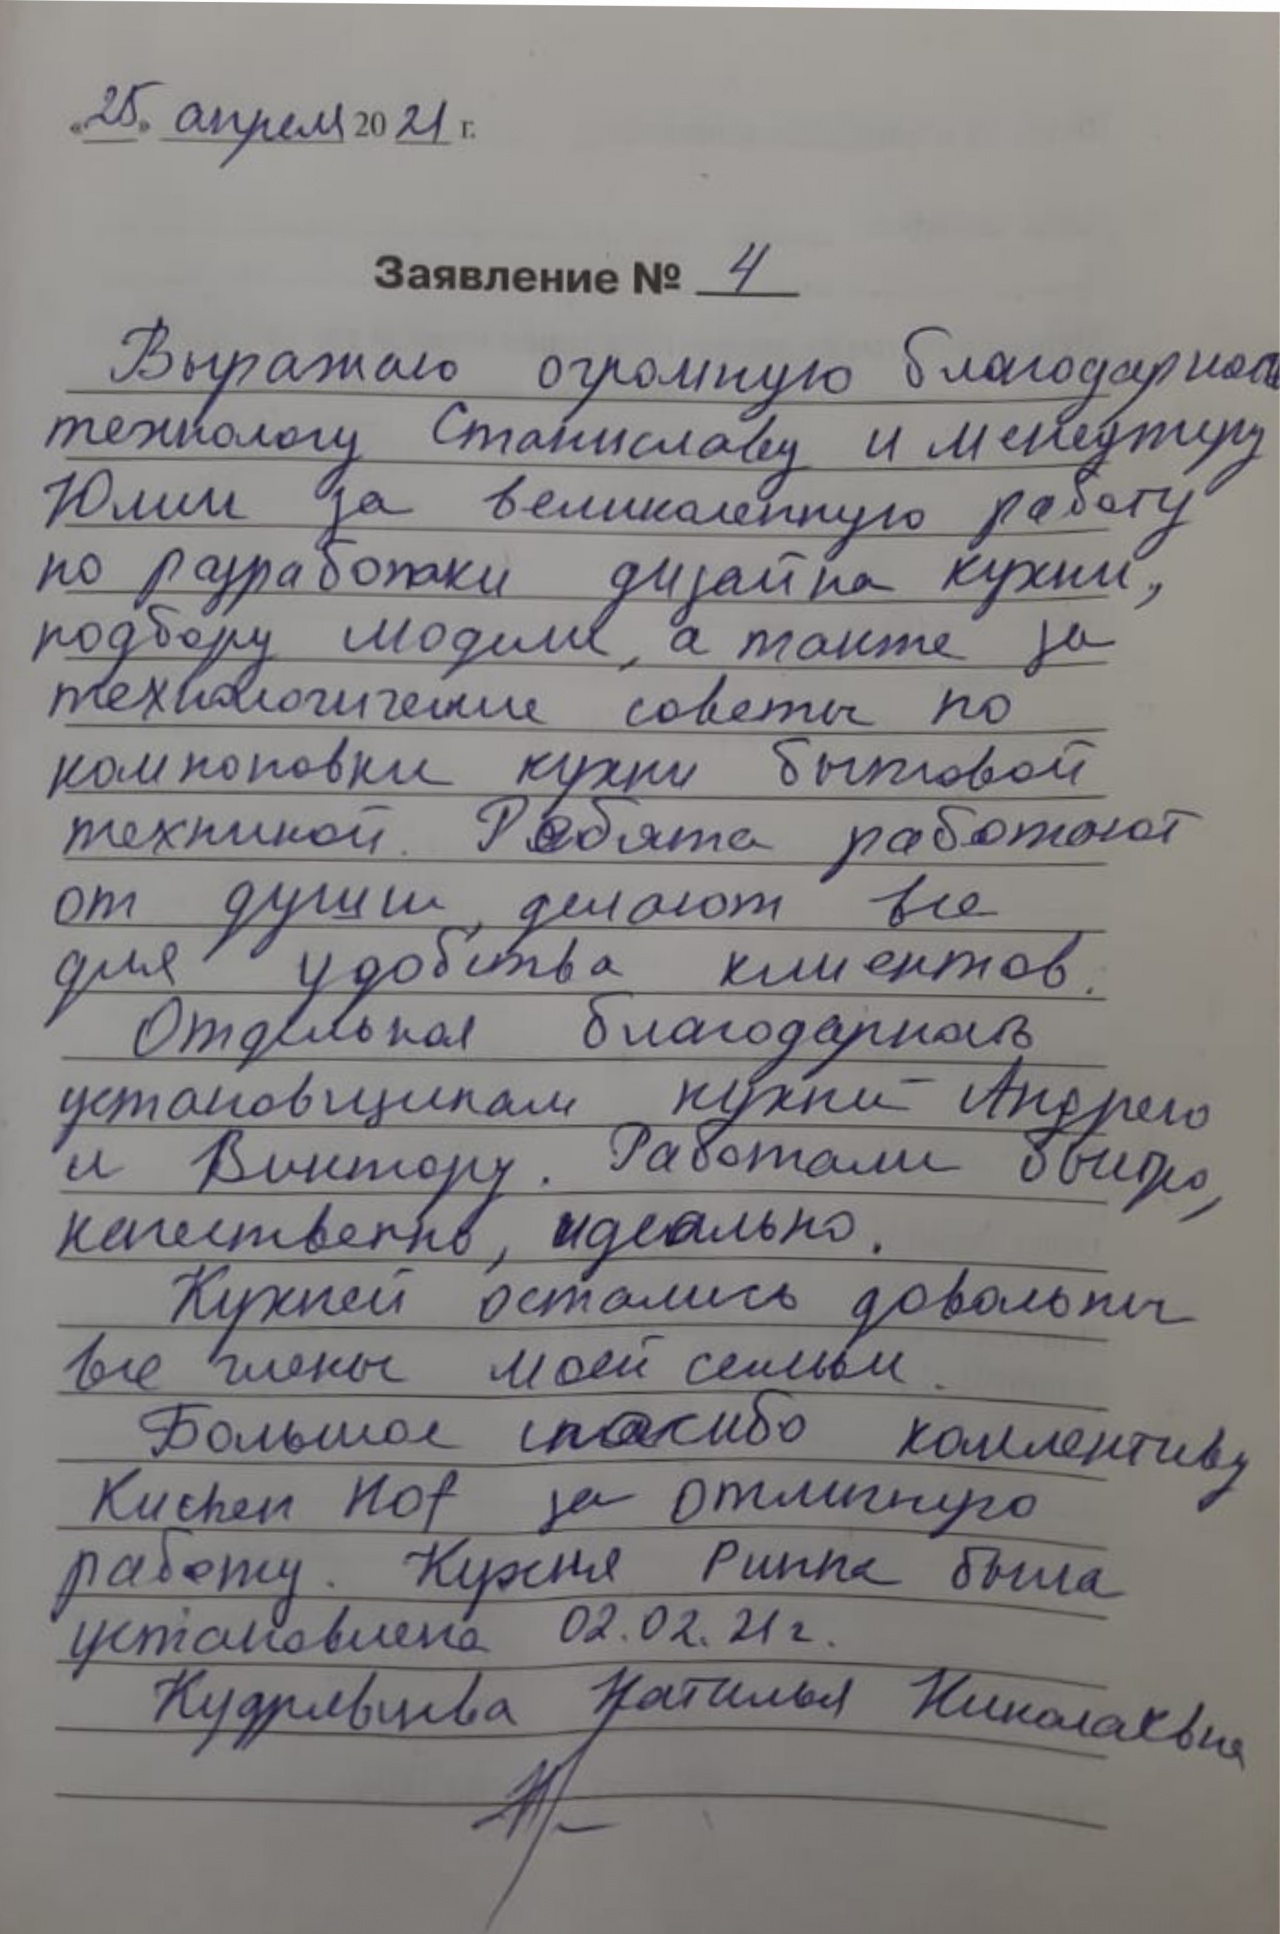 «25» апреля 2021 г.
Заявление № 4
Выражаю огромную благодарность
технологу Станиславу и менеджеру
Юлии за великолепную работу
по разработки дизайна кухни,
подбору модели, а также за
технологические советы по
компоновки кухни бытовой
техникой. Ребята работают
от души, делают все
для удобства клиентов.
Отдельная благодарность
установщикам кухни - Андрею
и Виктору. Работали быстро,
качественно, идеально.
Кухней остались довольны
все члены моей семьи.
Большое спасибо коллективу
Kuchen Hof за отличную
работу. Кухня Римма была
установлена 02.02.21г.
Кудрявцева Наталья Николаевна